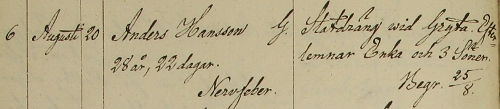 6 Augusti 20 Anders Hanssen G. Statdräng wid Gryta. Efter-
28 år, 22 dagar. lemnar Enka och 3 Söner.
Nervfeber. Begr. 25/8.